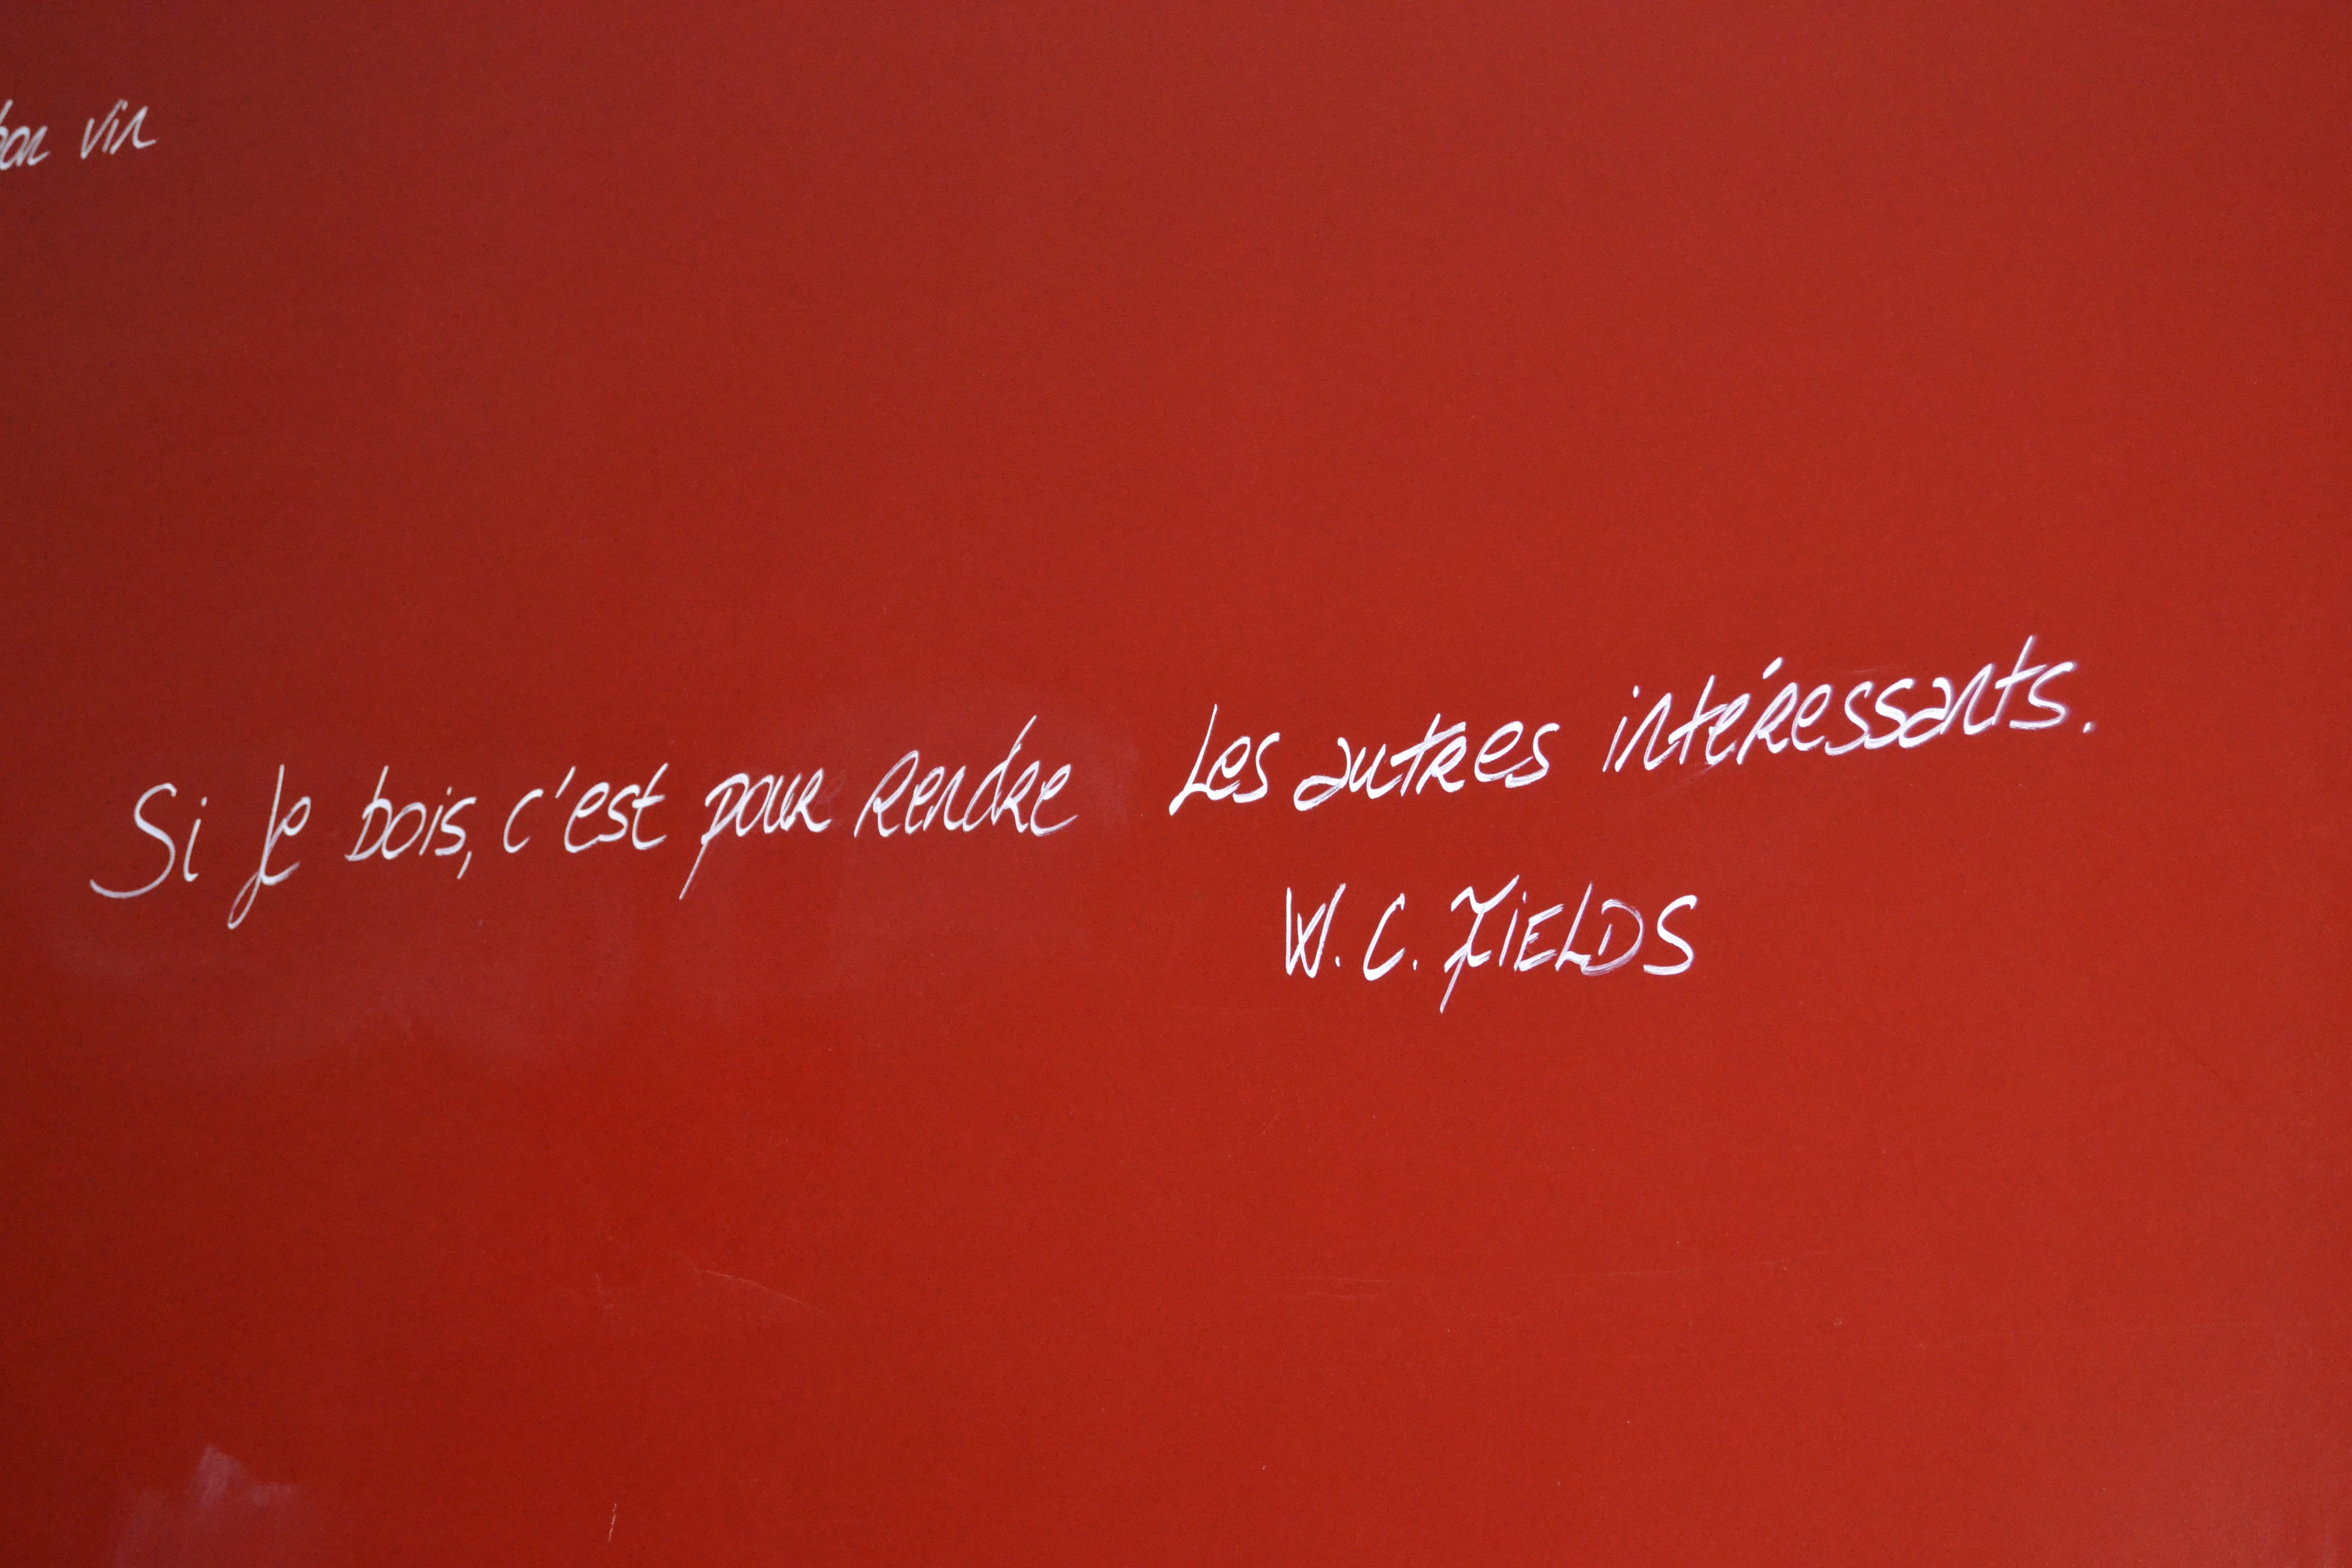 bon vin
Si je bois, c'est pour rendre les autres intéressants.
W. C. FIELDS